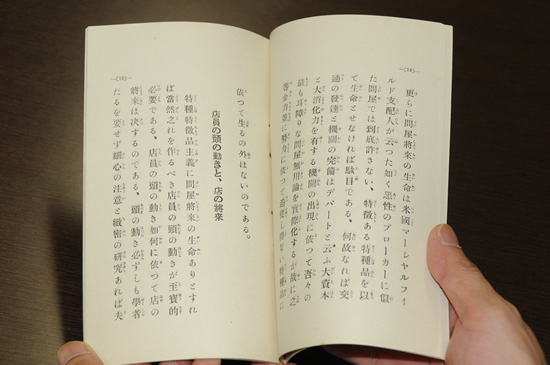 —(14)—
更らに問屋將來の生命は米國マーシヤルフイ
ルド支配人が云つた如く惡性のブローカーに似
た問屋では到底許さない、特徴ある特種品を以
て生命とせなければ駄目である、何故なれば交
通の發達と機關の完備はデパートと云ふ大資本
と大消化力を有する機關の出現に依つて吾々の
最も耳障りな問屋無用論を實際化するが故に之
依つて生るの外はないのである。
店員の頭の動きと、店の將來
特種特徴品主義に問屋將來の生命ありとすれ
ば當然之れを作るべき店員の頭の動きが至寶的
必要である、店員の頭の動き如何に依つて店の
將來は決するのである、頭の動き必ずしも學者
たるを要せず細心の注意と緻密の研究あれば夫